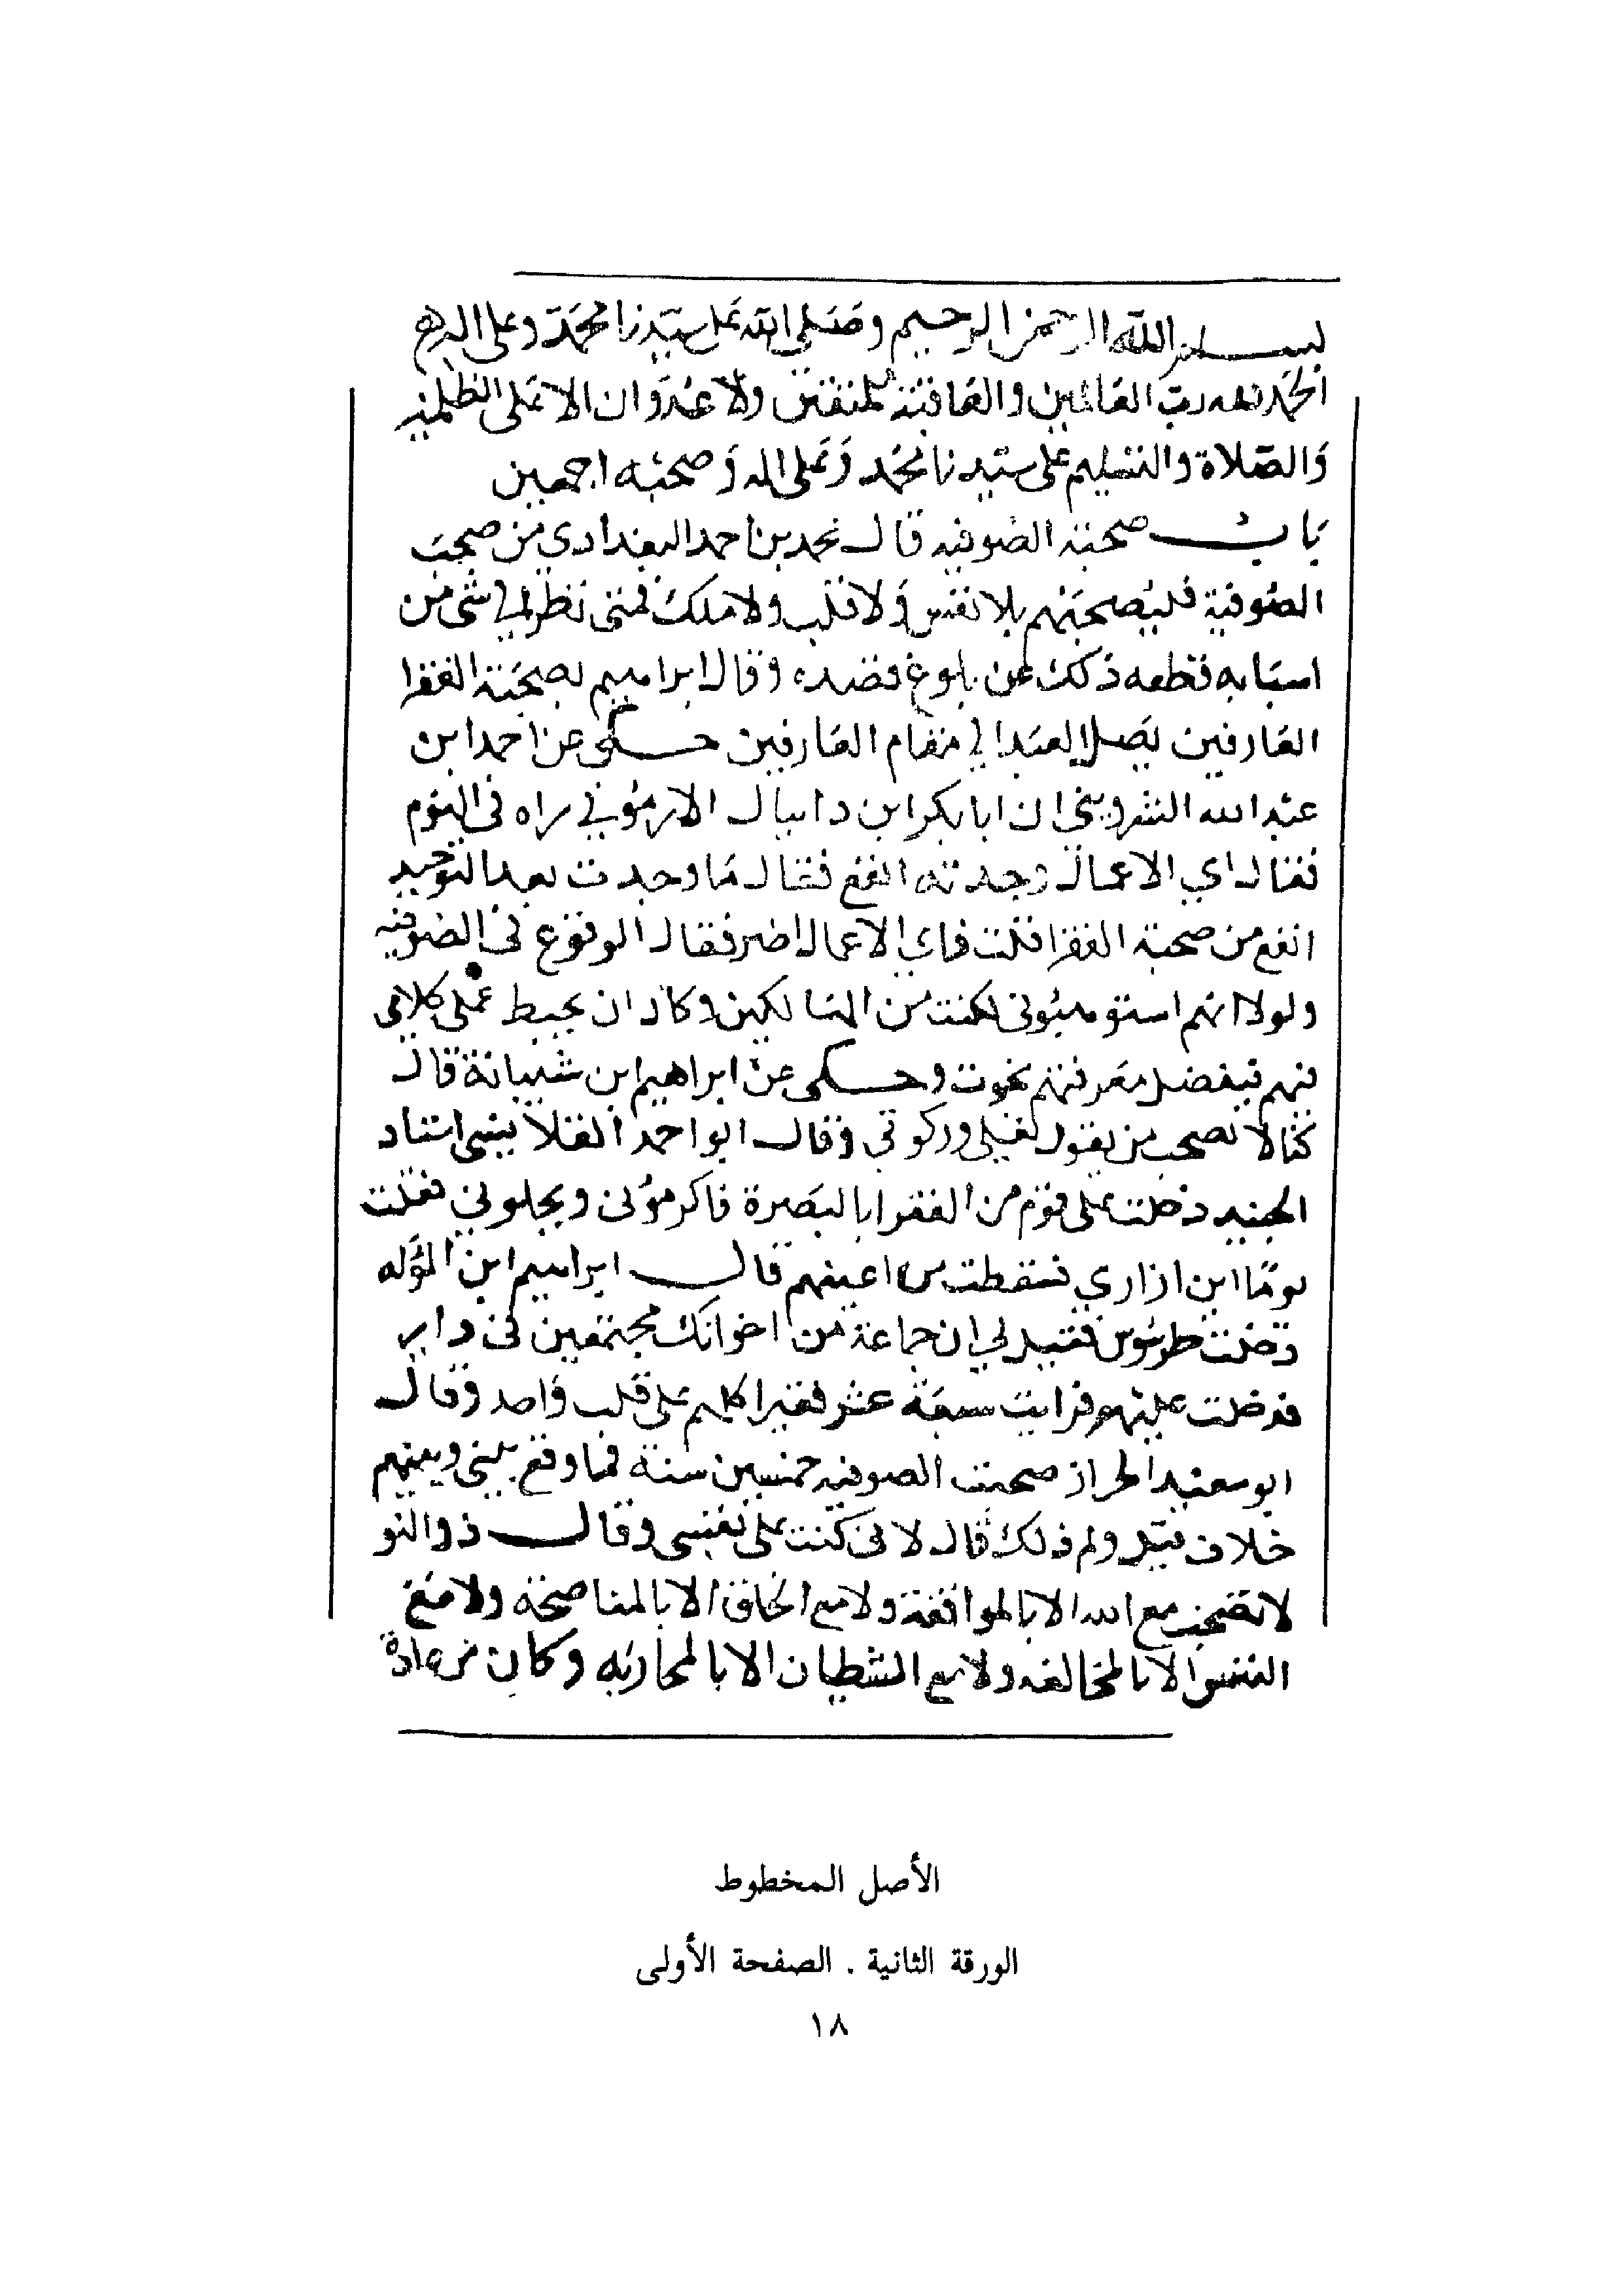 بسم الله الرحمن الرحيم وصلى الله على سيدنا محمد وعلى اله
الحمد لله رب العالمين والعاقبة للمتقين ولا عدوان الا على الظلمين
والصلاة والتسليم على سيدنا محمد وعلى اله وصحبه اجمعين
باب صحبة الصوفيه قال محمد بن احمد البغدادي من صحب
الصوفية فليصحبهم بلا نفس ولا قلب ولا ملك فمتى نظر الى شى من
اسبابه قطعه ذلك عن بلوغ قصده وقال ابراهيم بصحبة الفقرا
العارفين يصل العبد الى مقام العارفين حكى عن احمد ابن
عبد الله الشرويني ان ابا بكر ابن دانيال الارموي راه فى النوم
فقال اي الاعمال وجدته انفع فقال ما وجدت بعد التوحيد
انفع من صحبة الفقرا قلت فاي الاعمال اضر فقال الوقوع فى الصوفيه
ولولا انهم استوهبوني لكنت من الهالكين وكاد ان يحبط عملى كلامى
فيهم فبفضل معرفتهم نجوت وحكى عن ابراهيم ابن شيبانة قال
كنا لا نصحب من يقول نعلي وركوتي وقال ابو احمد القلانسى استاد
الجنيد دخلت على قوم من الفقرا بالبصرة فاكرموني وبجلوني فقلت
يوما اين ازاري فسقطت من اعينهم قال ابراهيم ابن المولد
دخلت طرسوس فقيل لي ان جماعة من اخوانك مجتمعين فى دار
فدخلت عليهم فرايت سبعة عشر فقيرا كلهم على قلب واحد وقال
ابو سعيد الخراز صحبت الصوفيه خمسين سنة فما وقع بينى وبينهم
خلاف قيل ولم ذلك قال لانى كنت على نفسى وقال ذو النو
لا تصحب مع الله الا بالموافقة ولا مع الخلق الا بالمناصحة ولا مع
النفس الا بالمخالفه ولا مع الشطيان الا بالمحاربه وكان من عادة
الأصل المخطوط
الورقة الثانية . الصفحة الأولى
١٨